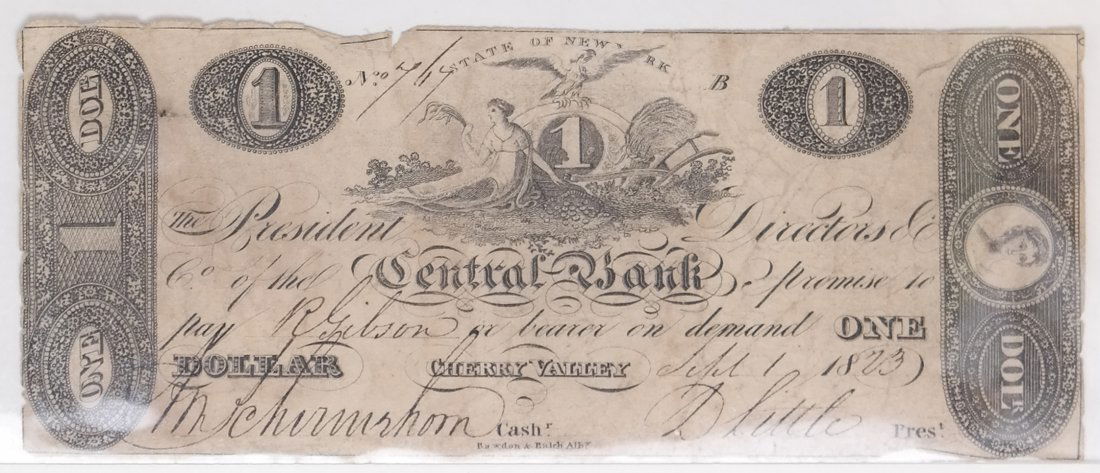 STATE OF NEW YORK
1 No 7/15 B 1
1
The President Directors &
Co. of the Central Bank promise to
pay R Gibson or bearer on demand ONE
DOLLAR CHERRY VALLEY Sept 1 1823
Schermerhorn Cashr. D Little Prest.
Rawdon & Balch Alby.
ONE
1
ONE
DOL